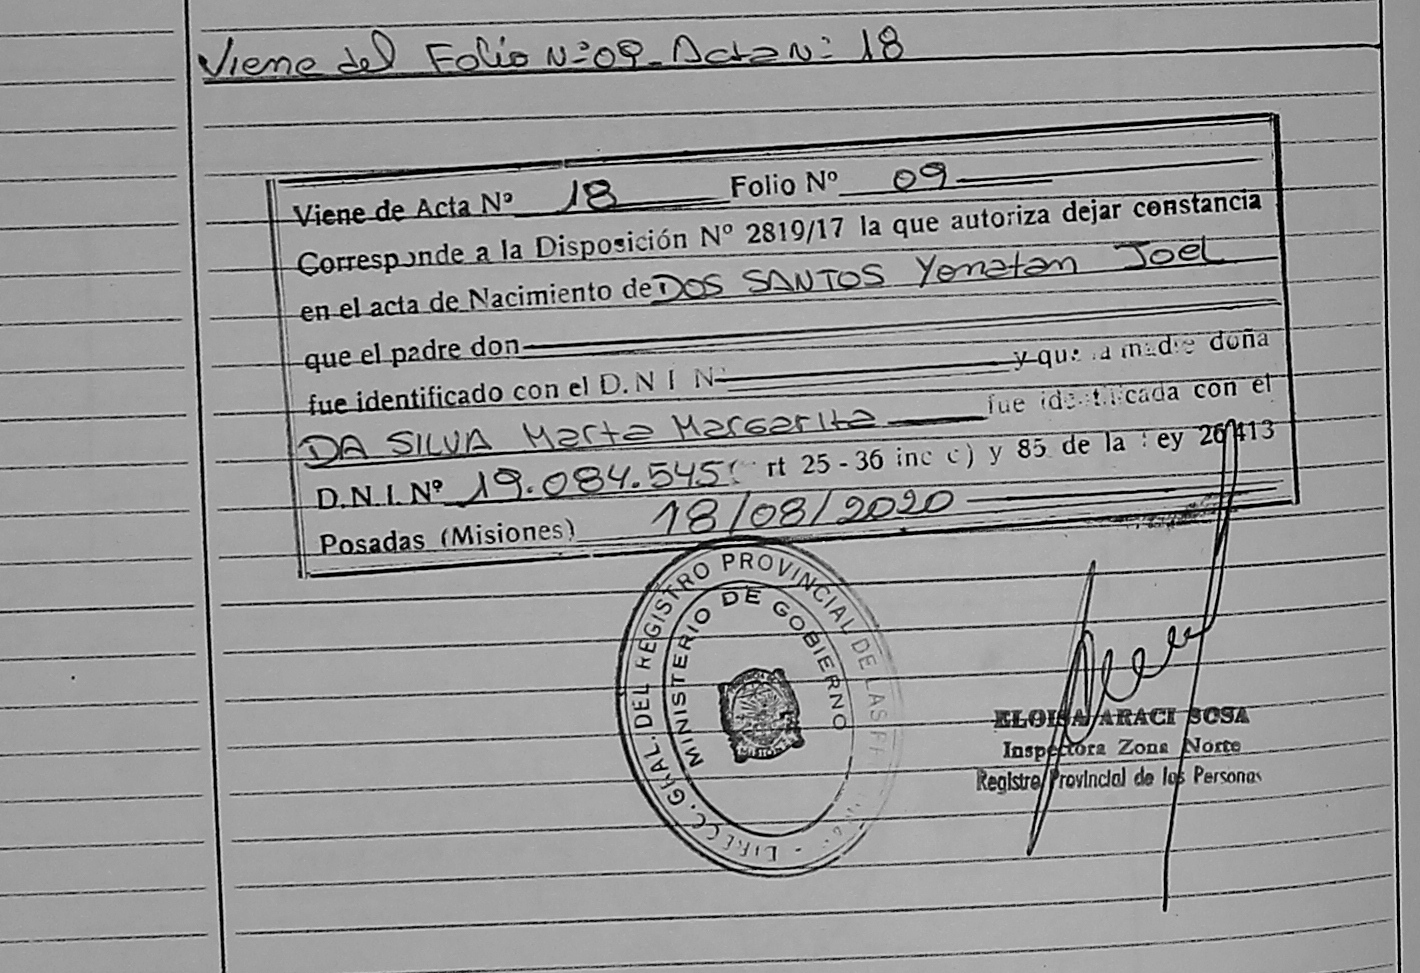 Viene del Folio N:09- Acta N: 18
Viene de Acta Nº 18 Folio Nº 09
Corresponde a la Disposición Nº 2819/17 la que autoriza dejar constancia
en el acta de Nacimiento de DOS SANTOS Yonatan Joel
que el padre don
fue identificado con el D.N I N y que la madre doña
DA SILVA Marta Margarita fue identificada con el
D.N.I. Nº 19.084.545 rt 25-36 inc c) y 85 de la ley 26413
Posadas (Misiones) 18/08/2020
DIRECC. GRAL. DEL REGISTRO PROVINCIAL DE LAS
MINISTERIO DE GOBIERNO
ELOISA ARACI SOSA
Inspectora Zona Norte
Registro Provincial de las Personas